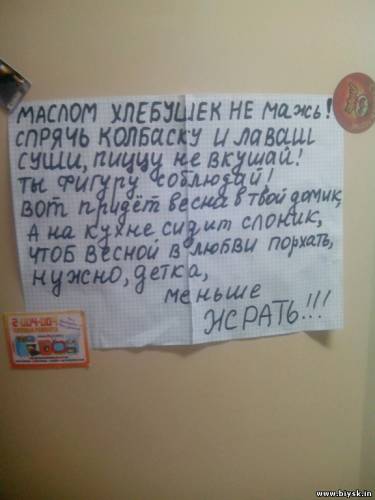 МАСЛОМ ХЛЕБУШЕК НЕ мажь!
СПРЯЧЬ КОЛБАСКУ И ЛАВАШ
СУШИ, ПИЦЦУ НЕ ВКУШАЙ!
ТЫ ФИГУРУ СОБЛЮДАЙ!
ВОТ ПРИДЁТ ВЕСНА В ТВОЙ ДОМИК,
А НА КУХНЕ СИДИТ СЛОНИК,
ЧТОБ ВЕСНОЙ В ЛЮБВИ ПОРХАТЬ,
НУЖНО, ДЕТКА,
меньше
ЖРАТЬ!!!
www.biysk.in